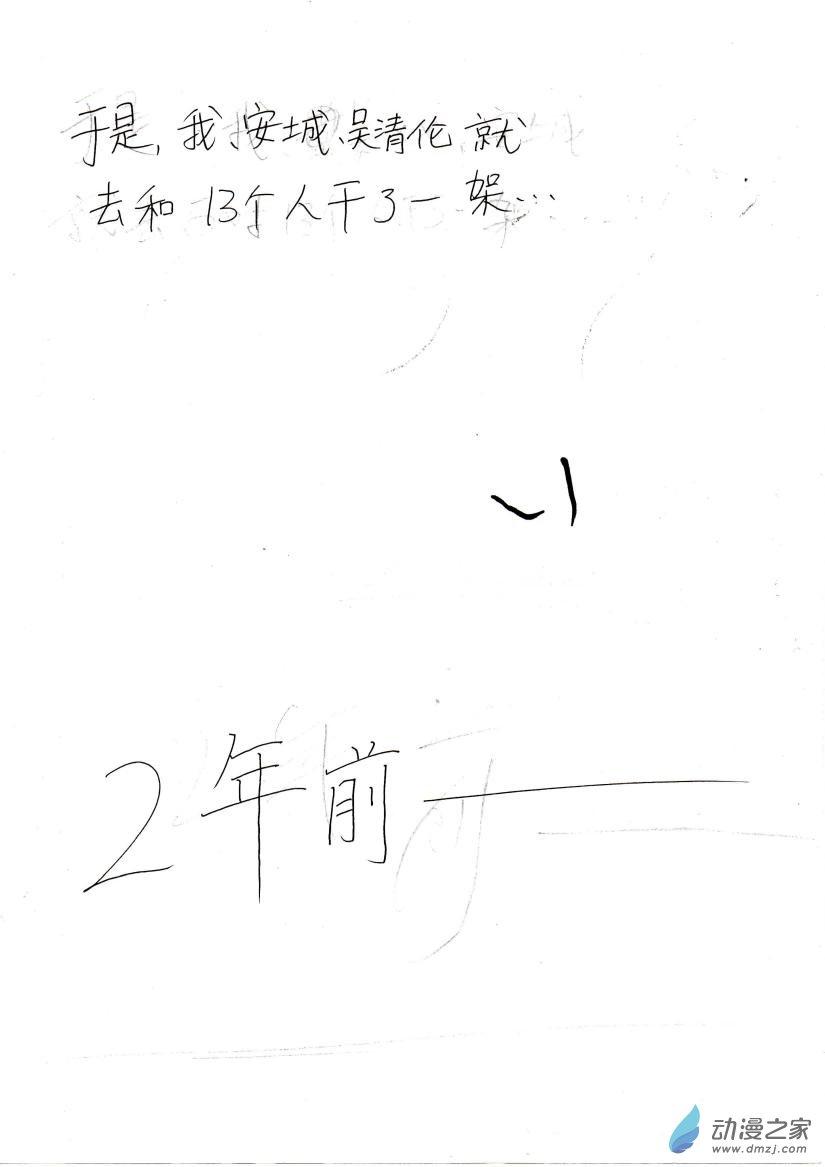 于是,我安城、吴清伦就
去和13个人干了一架…
2年前——
动漫之家
www.dmzj.com